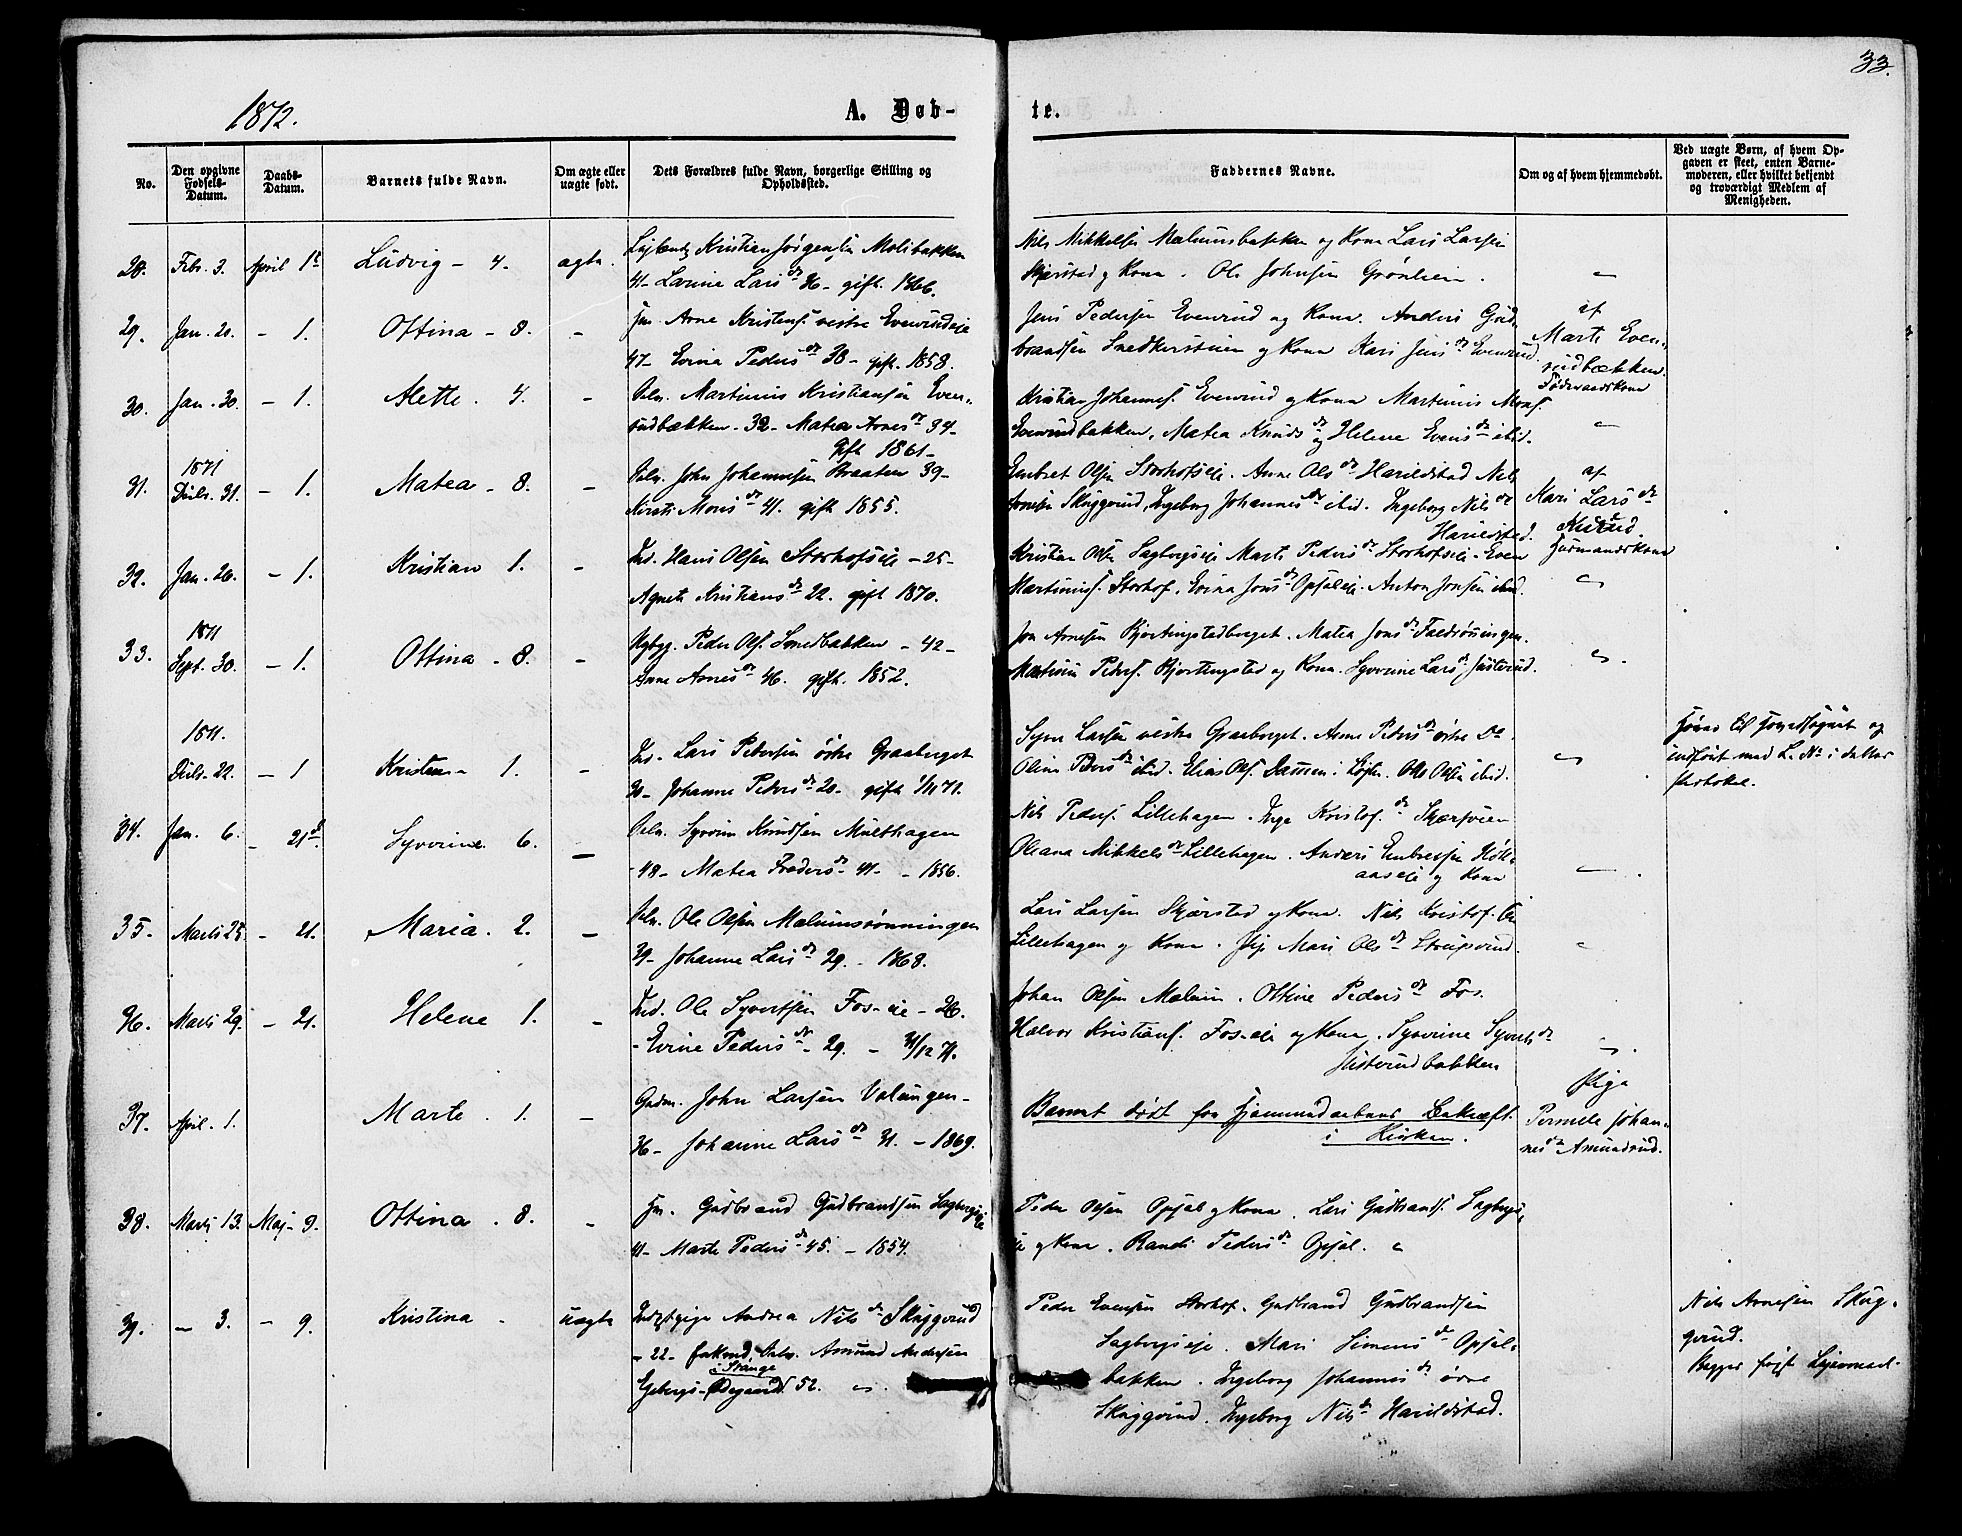 33.
1872.
A. Døb-
te.
No.
Den opgivne Fødsels-Datum.
Daabs-Datum.
Barnets fulde Navn.
Om ægte eller uægte født.
Dets Forældres fulde Navn, borgerlige Stilling og Opholdssted.
Faddernes Navne.
Om og af hvem hjemmedøbt.
Ved uægte Børn, af hvem Opgaven er skeet, enten Barnemoderen, eller hvilket bekjendt og troværdigt Medlem af Menigheden.
28. Febr. 3. April 1e Ludvig - 4. ægte. Kristian Jørgensen Molibakken
41- Larine Larsdr 36- gift. 1866.
Nils Mikkelsen og Kona Lars Larsen
Skjærstad og Kona. Ole Johnsen Grønlien.
29. Jan. 20. - 1. Ottina - 8. - Hm. Arne Kristens. vestre Evenrudeie
47- Evina Pedersdr 38- gift. 1858.
Jens Pedersen Evenrud og Kona. Anders Gud-
brandsen Snedkerstuen og Kona Kari Jensdr Evenrud.
af
Marte Even-
rudbækken.
30. Jan. 30. - 1. Alette. 4. - Martinius Kristiansen Even-
rudbækken. 32- Matea Arnesdr 34-
gift 1861-
Kristian Johannes. Evenrud og Kona Martinius Mons.
Evenrudbakken, Matea Knudsdr og Helene Evensdr ibid.
31. 1871 Dcbr. 31. - 1. Matea - 8. - John Johannesen Braaten 39-
Kirsti Monsdr 41. gift 1855.
Embret Olsen Storhofseie. Anne Olsdr Harildstad Nils
Arnesen Skuggerud, Ingeborg Johannesdr ibid. Ingeborg Nilsdr
Harildstad.
af
Kari Larsdr
32. Jan. 26. - 1. Kristian 1. - Ind. Hans Olsen Storhofseie - 25-
Agnete Kristiansdr 22. gift 1870.
Kristian Olsen Sagbergseie Marte Pedersdr Storhofseie - Even
Martinius. Storhof, Evina Jonsdr Opsaleie. Anton Jonsen ibid.
33. 1871 Sept. 30. - 1. Ottina - 8. - Peder Ols. Smedbakken - 42-
Anne Arnesdr 46. gift. 1852.
Jon Arnesen Kjortingstadberget. Matea Jonsdr
Peders. og Kona. Syverine Larsdr Justerud.
1871. Dcbr. 22. - 1 Kristen - 1. - Ind. Lars Pedersen østre Graaberget
30- Johanne Pedersdr 20- gift 1/11 71.
Syver Larsen vestre Graaberget. Anne Pedersdr østre Do.
Oline ibid. Elias Ols. i Løjten. Olsen ibid.
Hører til Hovedsognet og
indført med L. No i dettes
Protokol.
34. Jan. 6. - 21de Syverine. 6. - Syverin Knudsen Multhagen
48- Matea 41- - 1856.
Nils Peders. Lillehagen. Inge Kristof.dr
Oleana Mikkelsdr Lillehagen. Anders Embretsen
og Kona
35. Marts 25. - 21. Maria. 2. - Ole Olsen Mælumsrønningen
39- Johanne Larsdr 29. - 1868.
Lars Larsen Skjærstad og Kona. Nils Kristof.
Lillehagen og Kona. Pige Mari Olsdr
36. Marts 29. - 21. Helene 1. - Ind. Ole Syvertsen Fos-eie - 26.
- Evine Pedersdr - 29. - 31/12 71.
Johan Olsen Mælum. Ottine Pedersdr Fos.
Halvor Kristians. Fos-eie og Kona. Syverine Syvertsdr
Justerudbakken
37. April. 1. Marte. 1. - Gaardm. John Larsen Valungen-
36- Johanne Larsdr 31. - 1869.
Barnet dødt før Hjemmedaabens Bekræft.
i Kirken.
Pige
Pernille Johan-
nesdr Amundrud.
38. Marts 13. Maj - 9. Ottina. 8. - Hm. Gudbrand Gudbrandsen Sagbergseie
41- Marte Pedersdr 45. - 1854.
Peder Olsen Opsal og Kona. Lars Gudbrands. Sagbergs-
eie og Kona. Randi Pedersdr Opsal.
39. - 3. - 9. Kristina - uægte Andrea Nilsdr Skuggerud
- 22- Amund Andersen
i Stange
Egebergs-Ødegaard 52.
Peder Evensen Storhof. Gudbrand Gudbrandsen
Sagbergseie. Mari Simensdr Opsal-
bakken. Ingeborg Johannesdr øvre
Skuggerud. Ingeborg Nilsdr Harildstad.
Nils Arnesen Skug-
gerud.
Begges første Leiermaal-